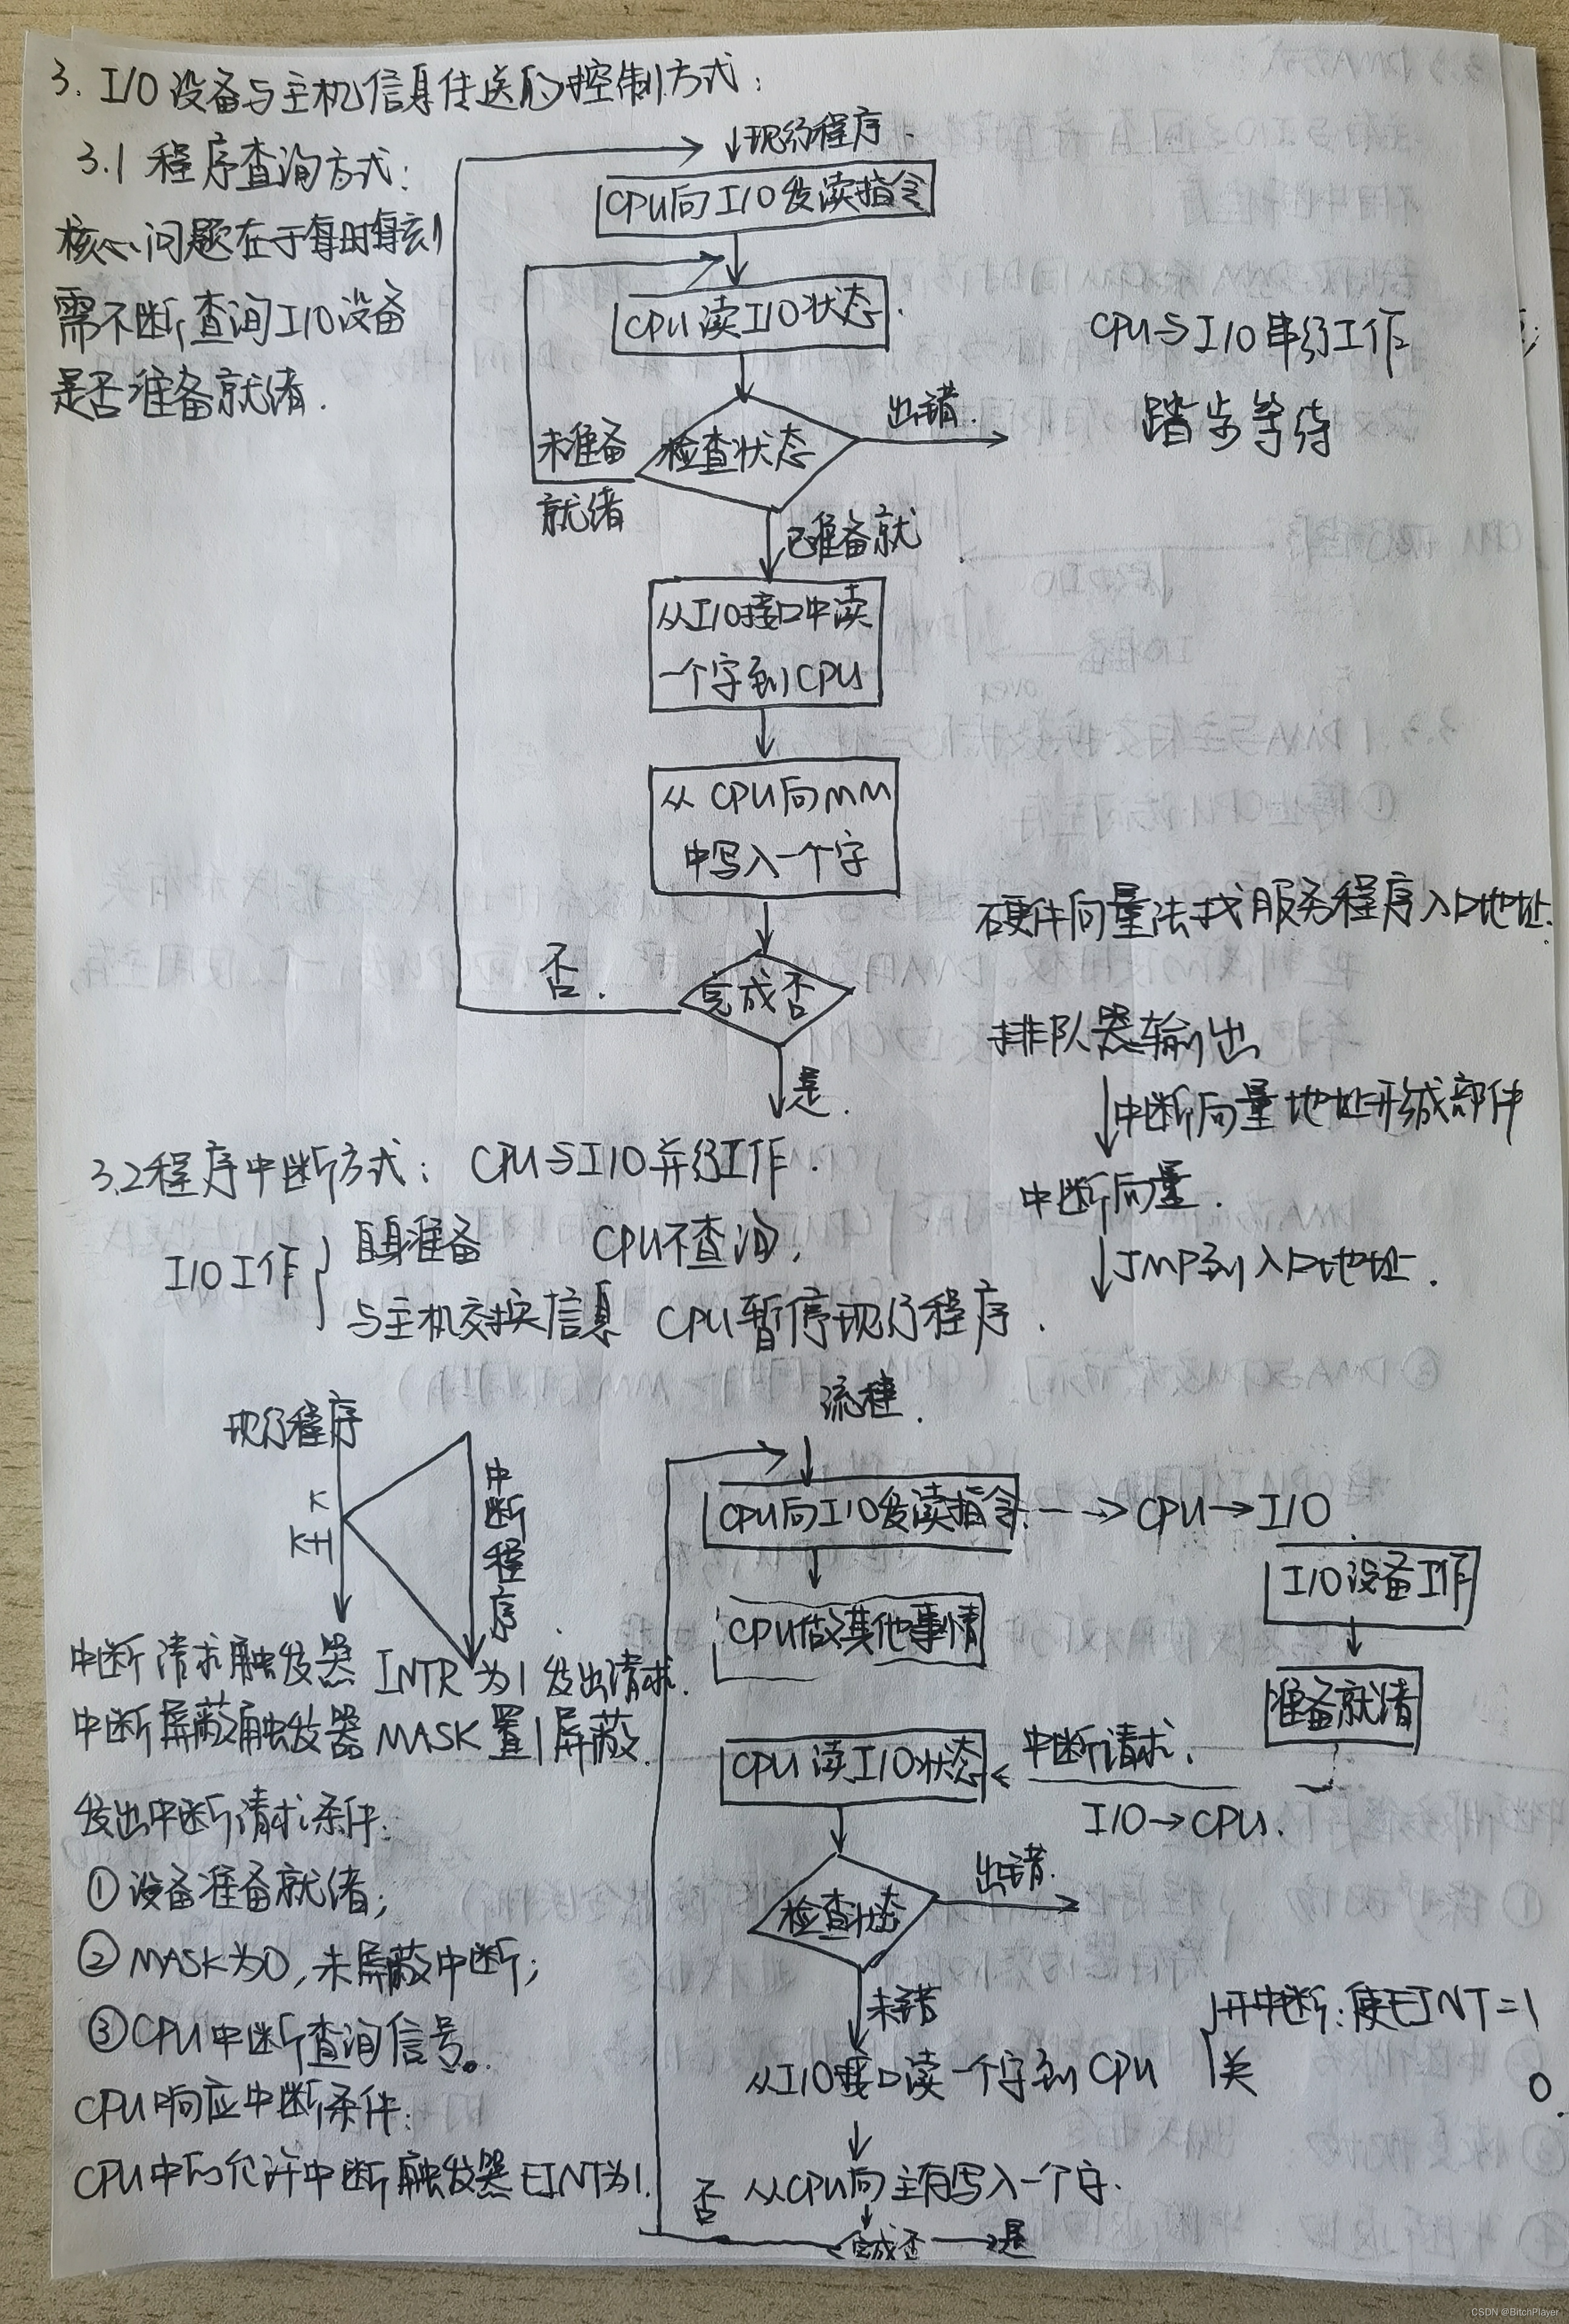 3. I/O设备与主机信息传送的控制方式:
3.1 程序查询方式:
核心问题在于每时每刻
需不断查询I/O设备
是否准备就绪.
现行程序.
CPU向I/O发读指令
CPU读I/O状态.
检查状态
出错.
未准备
就绪
已准备就
从I/O接口中读
一个字到CPU
从CPU向MM
中写入一个字
完成否
否.
是.
CPU与I/O串行工作
踏步等待
硬件向量法找服务程序入口地址.
排队器输出
中断向量地址形成部件
中断向量.
JMP到入口地址.
3.2程序中断方式: CPU与I/O并行工作.
I/O工作
自身准备 CPU不查询,
与主机交换信息 CPU暂停现行程序.
现行程序
K
K+1
中断程序.
中断请求触发器 INTR为1发出请求.
中断屏蔽触发器MASK置1屏蔽.
发出中断请求条件:
①设备准备就绪;
②MASK为0,未屏蔽中断;
③CPU中断查询信号。
CPU响应中断条件:
CPU中的允许中断触发器EINT为1.
流程.
CPU向I/O发读指令
CPU→I/O
CPU做其他事情
I/O设备工作
准备就绪
CPU读I/O状态
中断请求.
I/O→CPU.
检查状态
出错.
未错
从I/O接口读一个字到CPU
从CPU向主存写入一个字.
完成否
否
是
开中断:使EINT=1
关 0.
CSDN @BitchPlayer